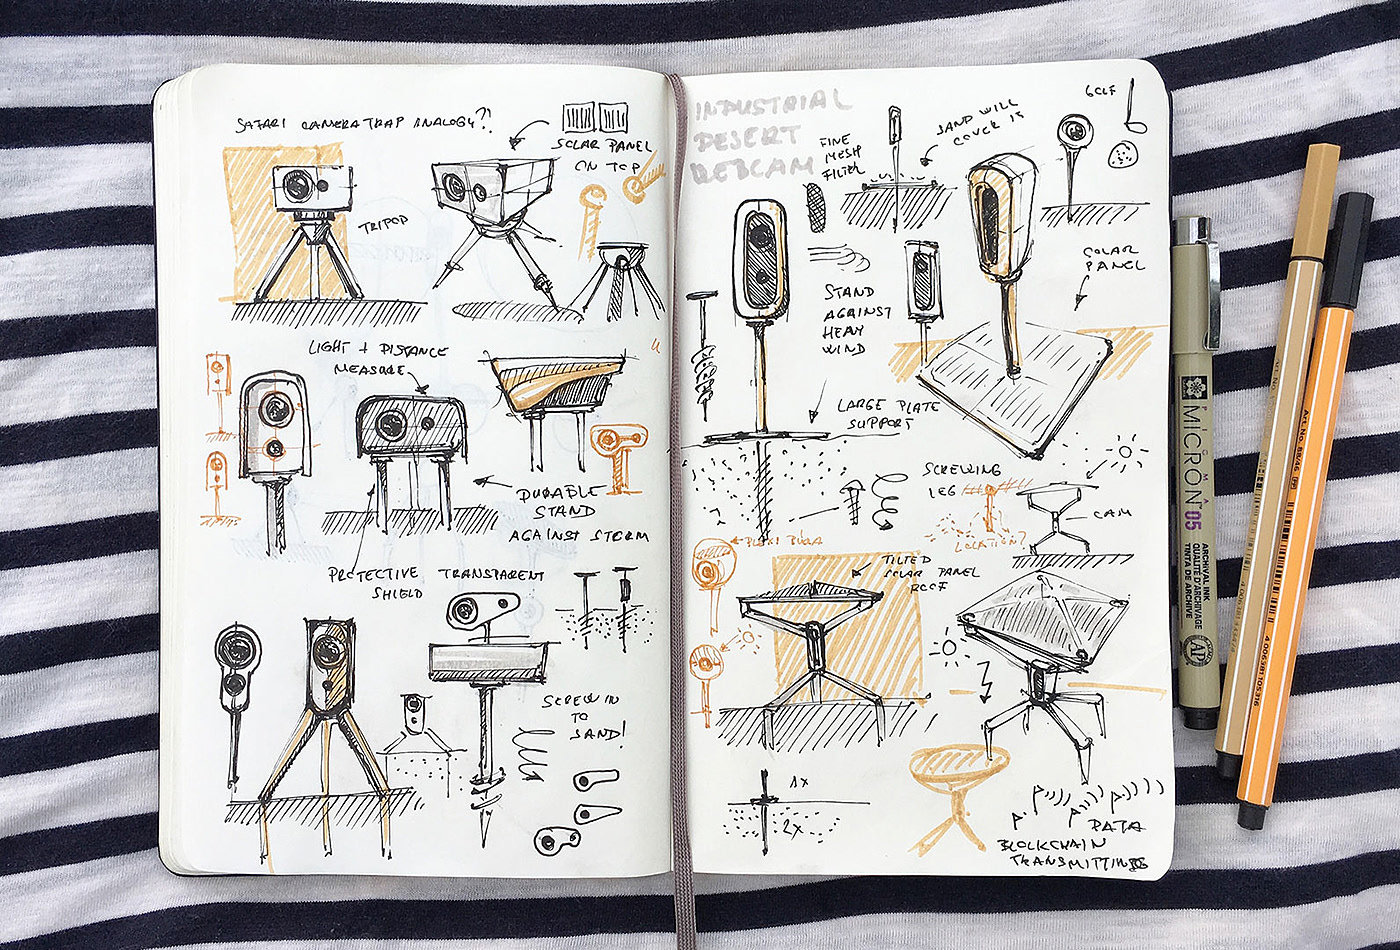 SAFARI CAMERA TRAP ANALOGY?!
SOLAR PANEL
ON TOP
TRIPOD
LIGHT + DISTANCE
MEASURE
DURABLE
STAND
AGAINST STORM
PROTECTIVE TRANSPARENT
SHIELD
SCREW IN
TO
SAND!
INDUSTRIAL
DESERT
WEBCAM
FINE
MESH
FILTER
SAND WILL
COVER IS
GOLF
SOLAR
PANEL
STAND
AGAINST
HEAVY
WIND
LARGE PLATE
SUPPORT
SCREWING
LEG
CAM
LOCATION?
TILTED
SOLAR PANEL
ROOF
1x
2x
DATA
BLOCKCHAIN
TRANSMITTING
PIGMA
MICRON 05
ARCHIVAL INK
QUALITÉ D'ARCHIVAGE
TINTA DE ARCHIVE
AP
Art. No. 88/46